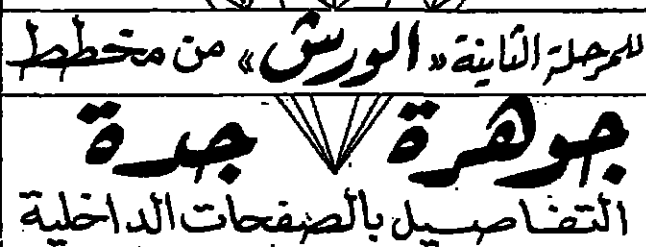 للمرحلة الثانية «الورش» من مخطط
جوهرة جدة
التفاصيل بالصفحات الداخلية